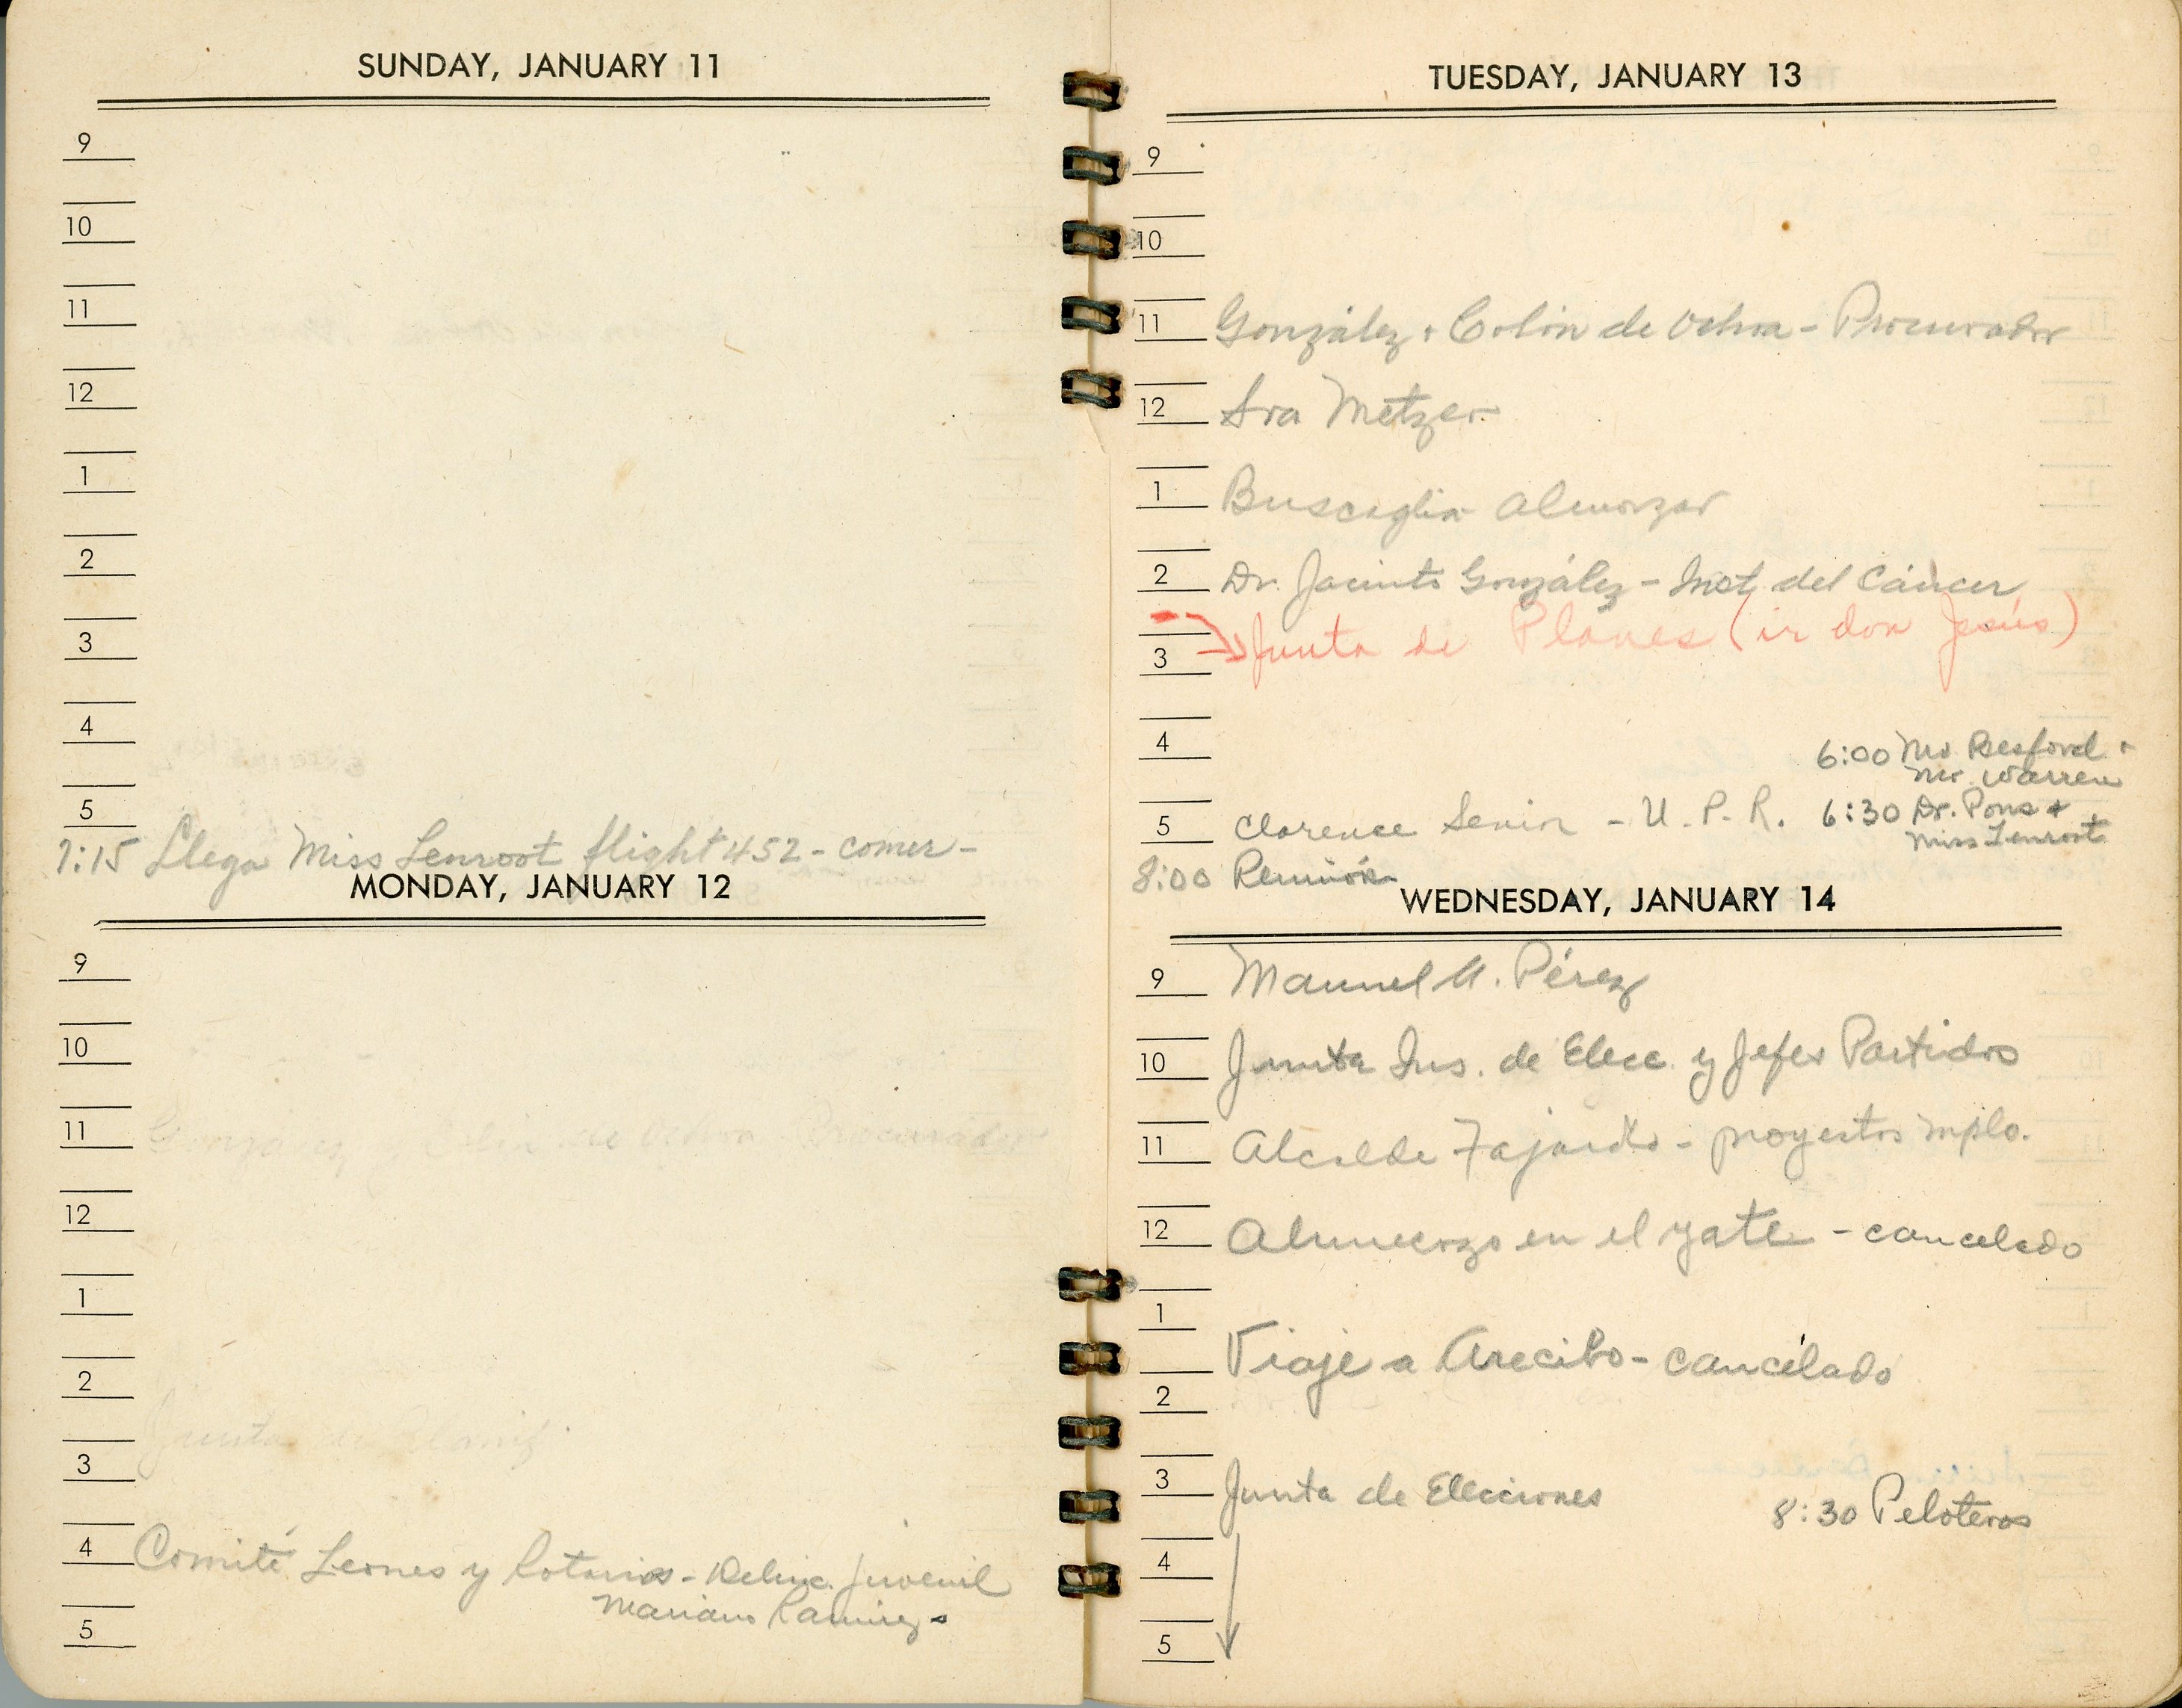 SUNDAY, JANUARY 11
9
10
11
12
1
2
3
4
5
7:15 Llega Miss Lenroot flight 452 - comer -
MONDAY, JANUARY 12
9
10
11 González y Colón de Ochoa Procurador
12
1
2
Junta de Planif.
3
4 Comité Leones y Rotarios - Delinc. juvenil
Mariano Ramírez
5
TUESDAY, JANUARY 13
9
10
11 González + Colón de Ochoa - Procurador
12 Sra Metzer
1 Buscaglia almorzar
2 Dr. Jacinto González - Inst. del Cáncer
3 Junta de Planes (ir don Jesús)
4
6:00 Mr +
Mr. Warren
5 Clarence Senior - U.P.R. 6:30 Dr. Pons +
Miss Lenroot
8:00 Reunión
WEDNESDAY, JANUARY 14
9 Manuel A. Pérez
10 Junta Ins. de Elecc. y Jefes Partidos
11 Alcalde Fajardo - proyectos mplo.
12 Almuerzo en el yate - cancelado
1
Viaje a Arecibo - cancelado
2
3 Junta de Elecciones
8:30 Peloteros
4
5